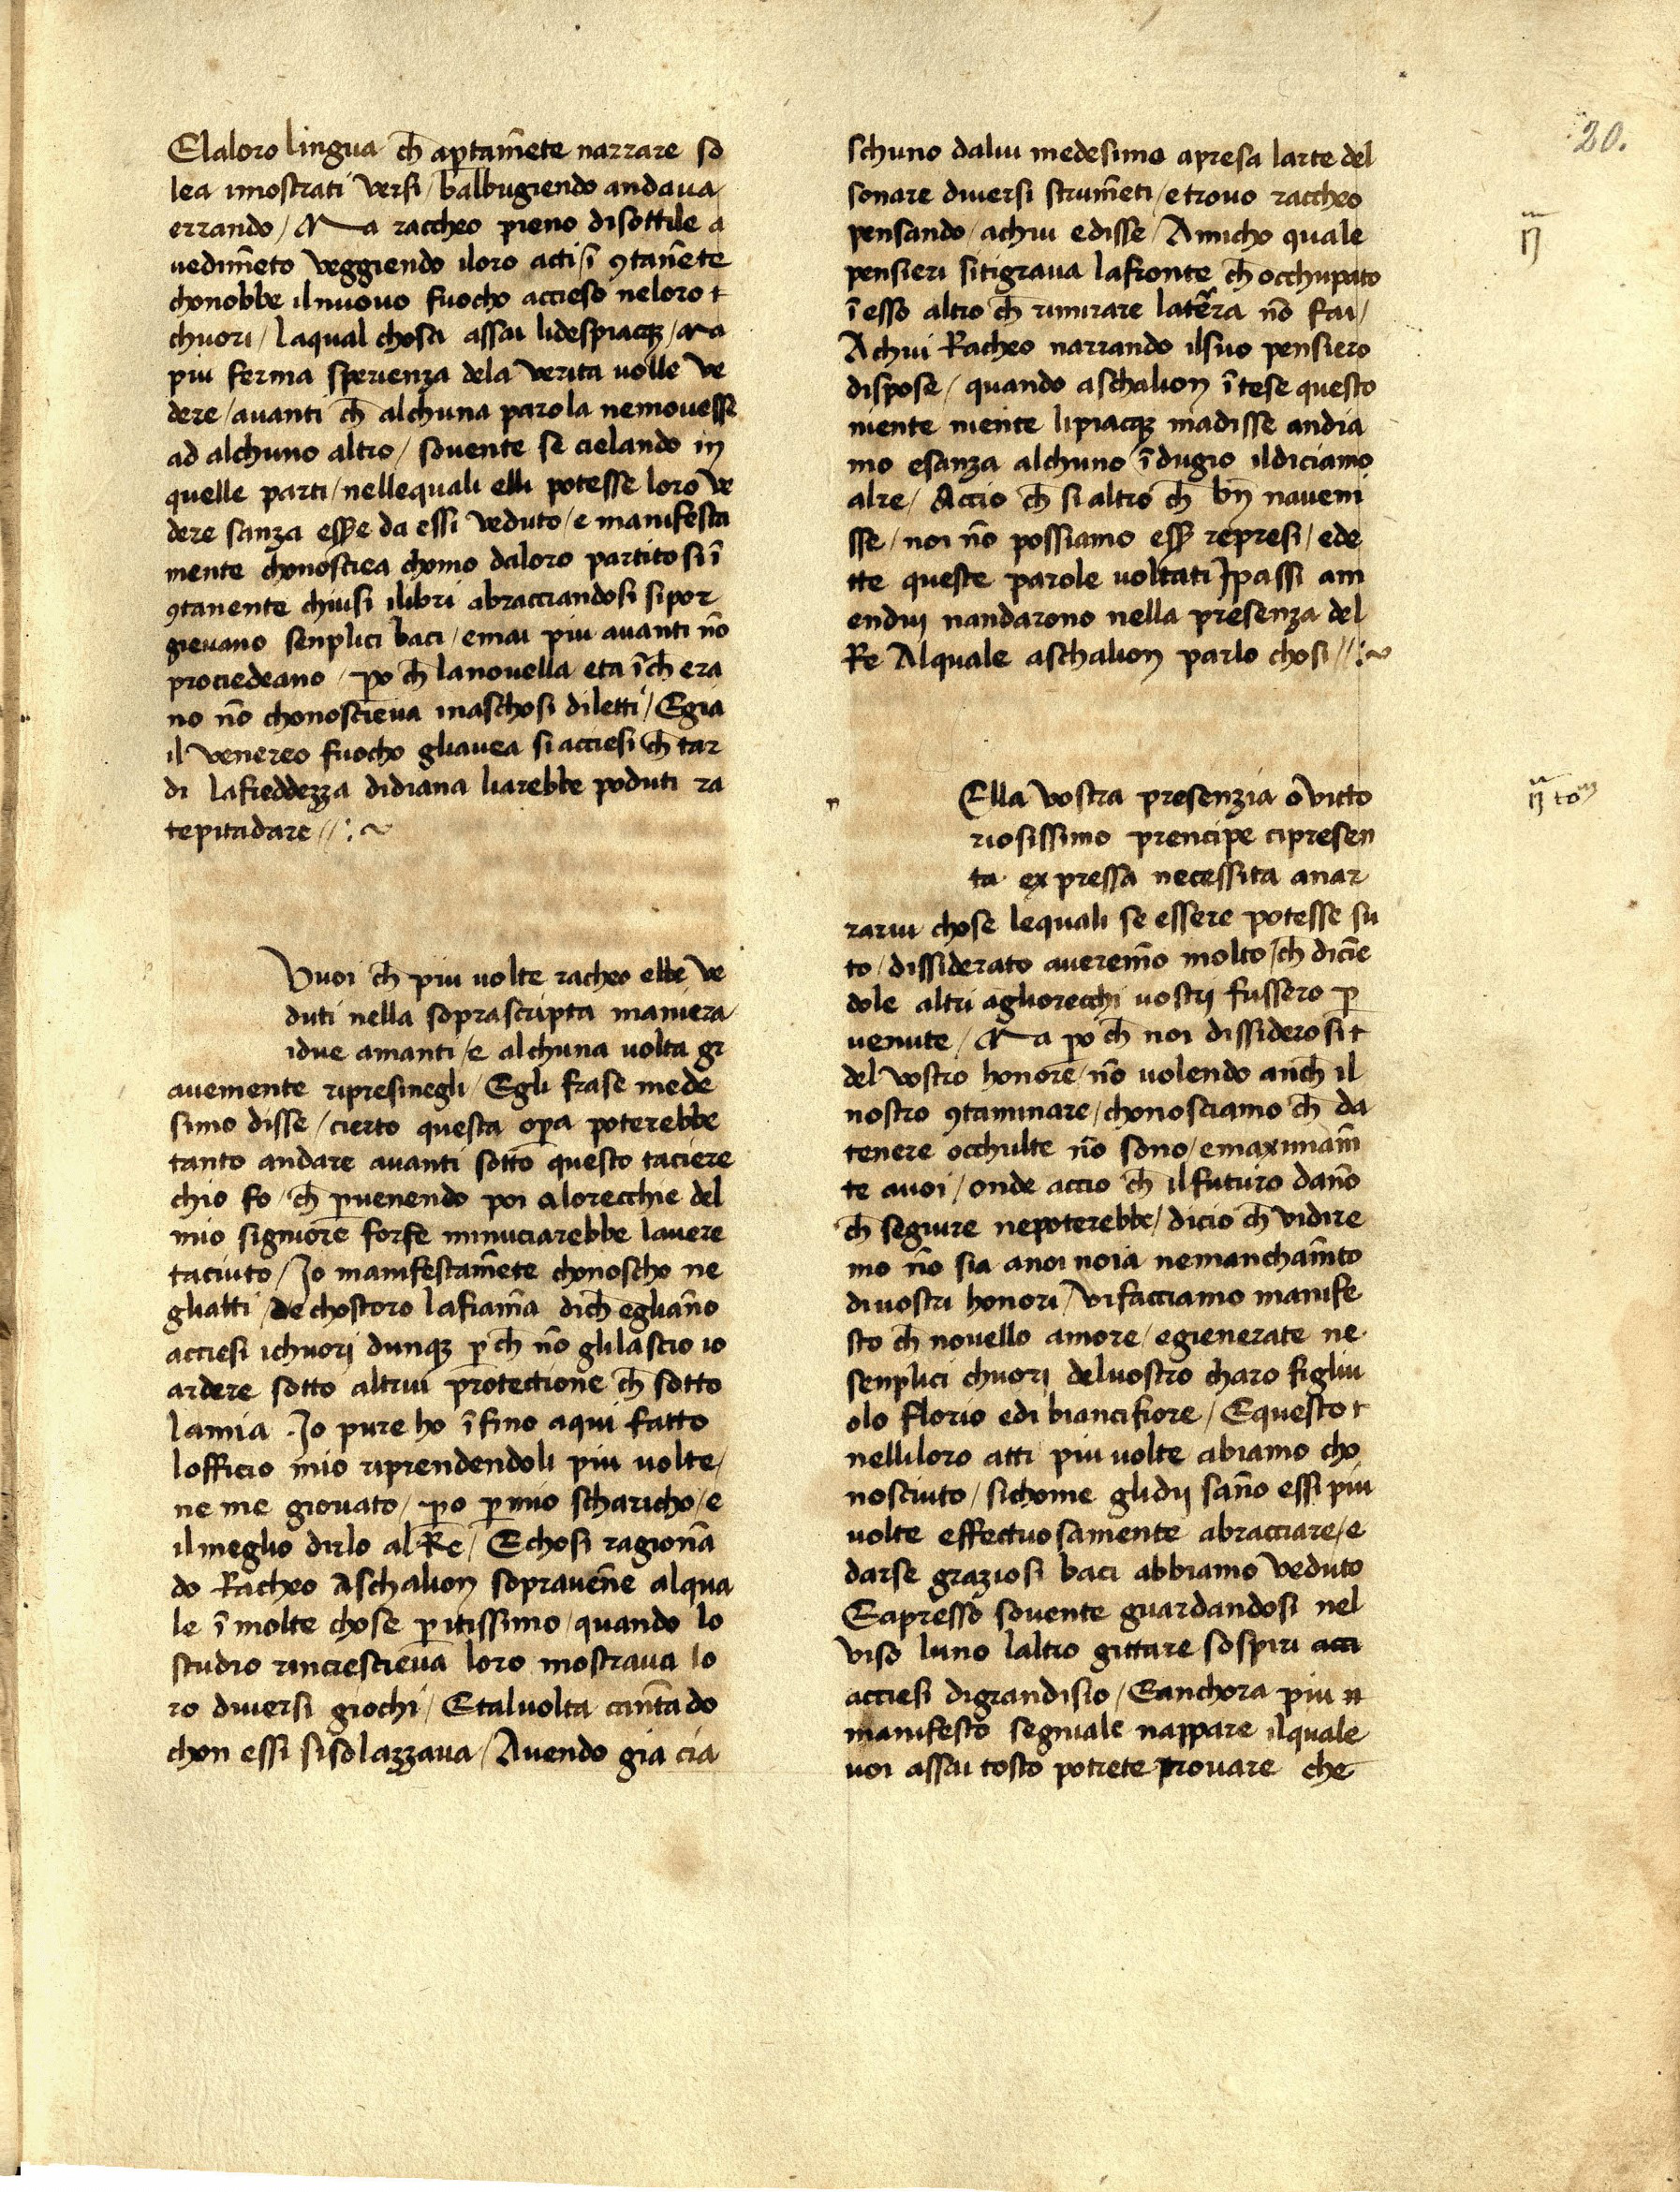 Elaloro lingua ch̄ aptam̄ete narrare so
lea imostrati versi / balbugiendo andava
errando / Ma raccheo pieno disottile a
uedim̄eto veggiendo iloro acti / ī ꝯtan̄ete
chonobbe ilnuouo fuocho acceso neloro
chuori / laqual chosa assai lidespiacqꝫ / ma
piu ferma sperienza dela verita uolle ve
dere / auanti ch̄ alchuna parola nemouesse
ad alchuno altro / souente se cielando in
quelle parti / nellequali elli potesse loro ve
dere sanza ess̄e da essi veduto / e manifesta
mente chonosciea chomo daloro partitosi ī
ꝯtanente chiusi ilibri abracciandosi sipor
gieuano senplici baci / emai piu auanti nō
prociedeano / ꝑo ch̄ lanouella eta īch̄ era
no nō chonoscieua inaschosi diletti / Egia
il venereo fuocho gliauea si acciesi ch̄ tar
di lafreddezza didiana liarebbe poduti ra
tepitadare //:~
Vuoi ch̄ piu uolte racheo ebbe ve
duti nella soprascripta maniera
idue amanti / e alchuna uolta gr
auemente ripresinegli / Egli frase mede
simo disse / cierto questa opa poterebbe
tanto andare auanti sotto questo taciere
chio fo / ch̄ ꝑuenendo poi alorecchie del
mio signore forse minuciarebbe lauere
taciuto / Jo manifestam̄ete chonoscho ne
gliatti / de chostoro lafiam̄a dich̄ eglian̄o
acciesi ichuorj dunqꝫ ꝑch̄ nō glilascio io
ardere sotto altrui protectione ch̄ sotto
lamia . Jo pure ho ī fino aqui fatto
lofficio mio riprendendoli piu uolte /
ne me giouato / ꝑo ꝑ mio scharicho / e
ilmeglio dirlo al Re / Echosi ragionā
do Racheo Aschalion soprauen̄e alqua
le ī molte chose ꝑitissimo / quando lo
studio rincrescieua loro mostraua lo
ro diuersi giochi / Etaluolta cantādo
chon essi sisolazzaua / Auendo gia cia
schuno dalui medesimo apresa larte del
sonare diuersi strum̄eti / e trouo raccheo
pensando / achui edisse / Amicho quale
pensieri sitigraua lafronte ch̄ occhupato
ī esso altro ch̄ rimirare laterra nō fai /
Achui Racheo narrando ilsuo pensiero
dispose / quando aschalion ī tese questo
niente niente lipiacqꝫ madisse andia
mo esanza alchuno ī dugio ildiciamo
alre / Accio ch̄ si altro ch̄ bn̄ naueni
sse / noi nō possiamo ess̄ represi / ede
tte queste parole uoltati J passi am
enduj nandarono nella presenza del
Re Alquale aschalion parlo chosi //:~
Ella vostra presenzia o victo
riosissimo prencipe cipresen
ta expressa necessita anar
rarui chose lequali se essere potesse su
to / dissiderato auerem̄o molto / ch̄ dicīe
dole altri agliorecchi uostrj fussero ꝑ
uenute / Ma ꝑo ch̄ noi dissiderosi
del vostro honore / nō uolendo anch̄ il
nostro ꝯtaminare / chonosciamo ch̄ da
tenere occhulte nō sono / emaximam̄
te auoi / onde accio ch̄ ilfuturo dan̄o
ch̄ seguire nepoterebbe / dicio ch̄ vidire
mo nō sia anoi noia nemancham̄to
diuostri honori / vifacciamo manife
sto ch̄ nouello amore / egienerate ne
senplici chuorj deluostro charo figliu
olo florio edi biancifiore / Equesto
nelliloro atti piu uolte abiamo cho
nosciuto / sichome glidij san̄o essi piu
uolte effectuosamente abracciare / e
darse graziosi baci abbiamo veduto
Eapresso souente guardandosi nel
viso luno laltro gittare sospiri acci
acciesi digrandisio / Eanchora piu
manifesto segniale nappare ilquale
uoi assai tosto potrete prouare che
20.